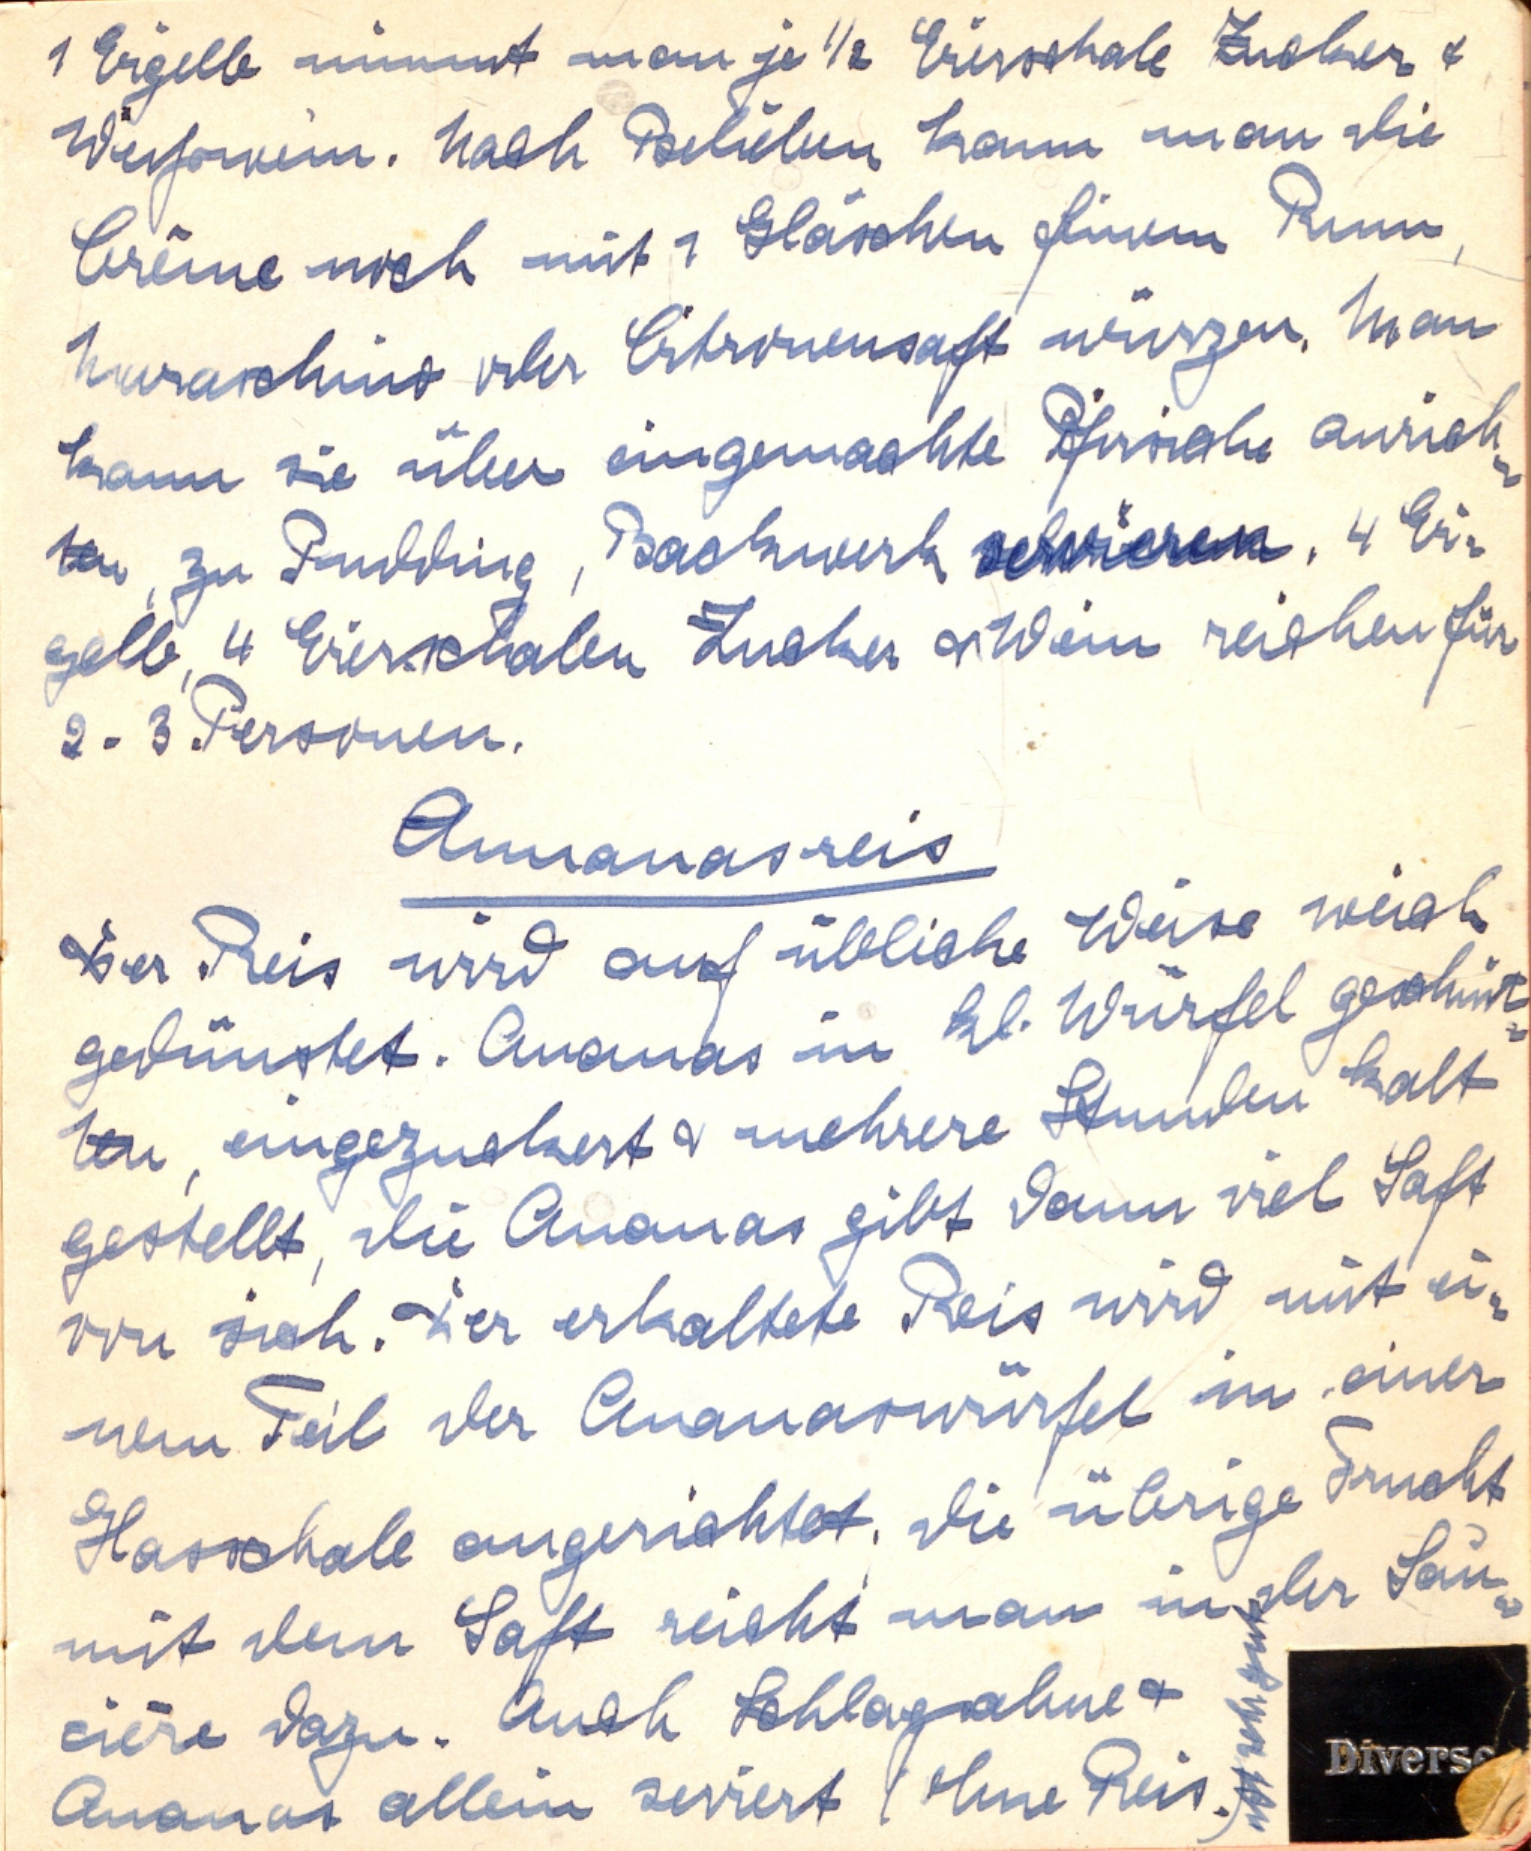 1 Eigelb nimmt man je 1/2 Eierschale Zucker &
Weißwein. Nach Belieben kann man die
Crême noch mit 1 Gläschen feinem Rum,
Maraschino oder Citronensaft würzen. Man
kann sie über eingemachte Pfirsiche anrich-
ten, zu Pudding, Backwerk servieren. 4 Ei-
gelb, 4 Eierschalen Zucker & Wein reichen für
2 - 3 Personen.
Annanasreis
Der Reis wird auf übliche Weise weich
gedünstet. Ananas in kl. Würfel geschnit-
ten, eingezuckert & mehrere Stunden kalt
gestellt, die Ananas gibt dann viel Saft
von sich. Der erkaltete Reis wird mit ei-
nem Teil der Ananaswürfel in einer
Glasschale angerichtet, die übrige Frucht
mit dem Saft reicht man in der Sau-
cière dazu. Auch Schlagsahne &
Ananas allein serviert (ohne Reis.)
ist sehr gut
Diverse